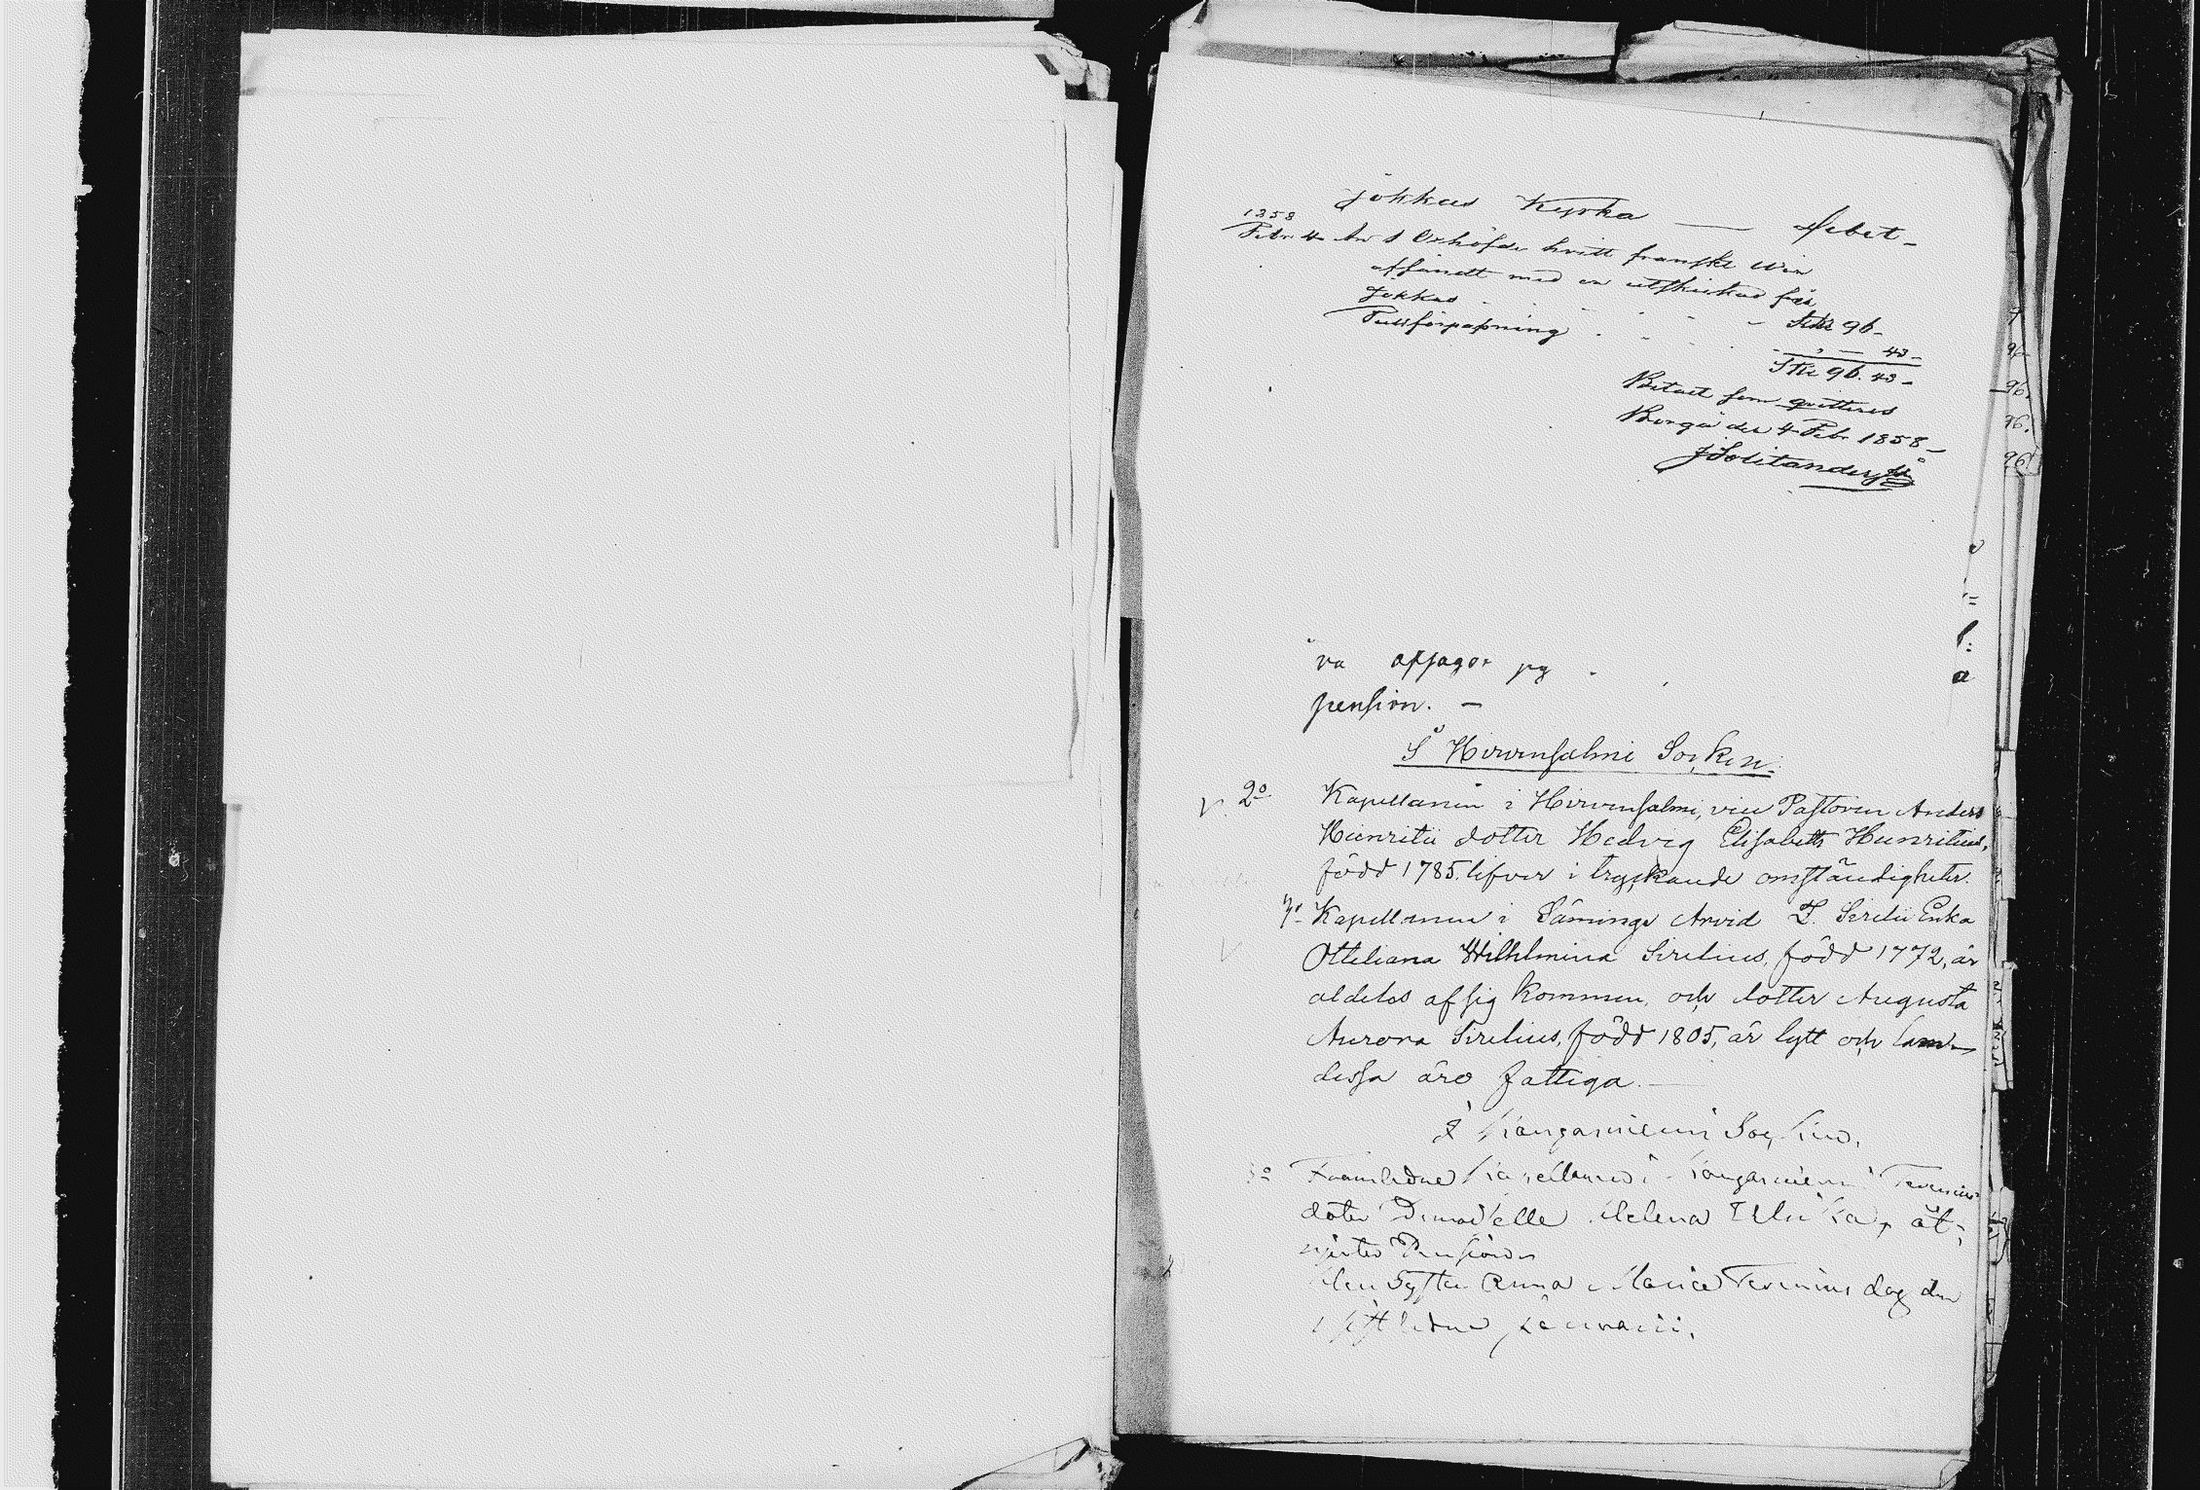 Jokkas Kyrka — Debet —
1858
Febr 4 An 1 Oxhöfde hvitt franskt Win
afsändt med en utskickad från
Jokkas . . . . SRr 96 —
Tullförpaßning . . . . „ — 43 —
SRr 96. 43 —
Betalt som qvitteras
Borgå den 4 Febr 1858 —
J Solitander
va afsager sig
pension. —
I Hirvensalmi Socken.
V. 2º Kapellanen i Hirvensalmi, vice Pastoren Anders
Heinricii dotter Hedvig Elisabeth Heinricius,
född 1785, lifver i tryckande omständigheter.
Kapellanen i Säminge Arvid F. Sirelii Enka
Otteliana Wilhelmina Sirelius, född 1772, är
aldeles af sig kommen, och dotter Augusta
Aurora Sirelius, född 1805, är lytt och lam —
dessa äro fattiga. —
I Kangasniemi Socken.
3º Framledne Kapellanen i Kangasniemi
doter Demoiselle Helena Ulrika, åt-
njuter Pension
Maria dog den